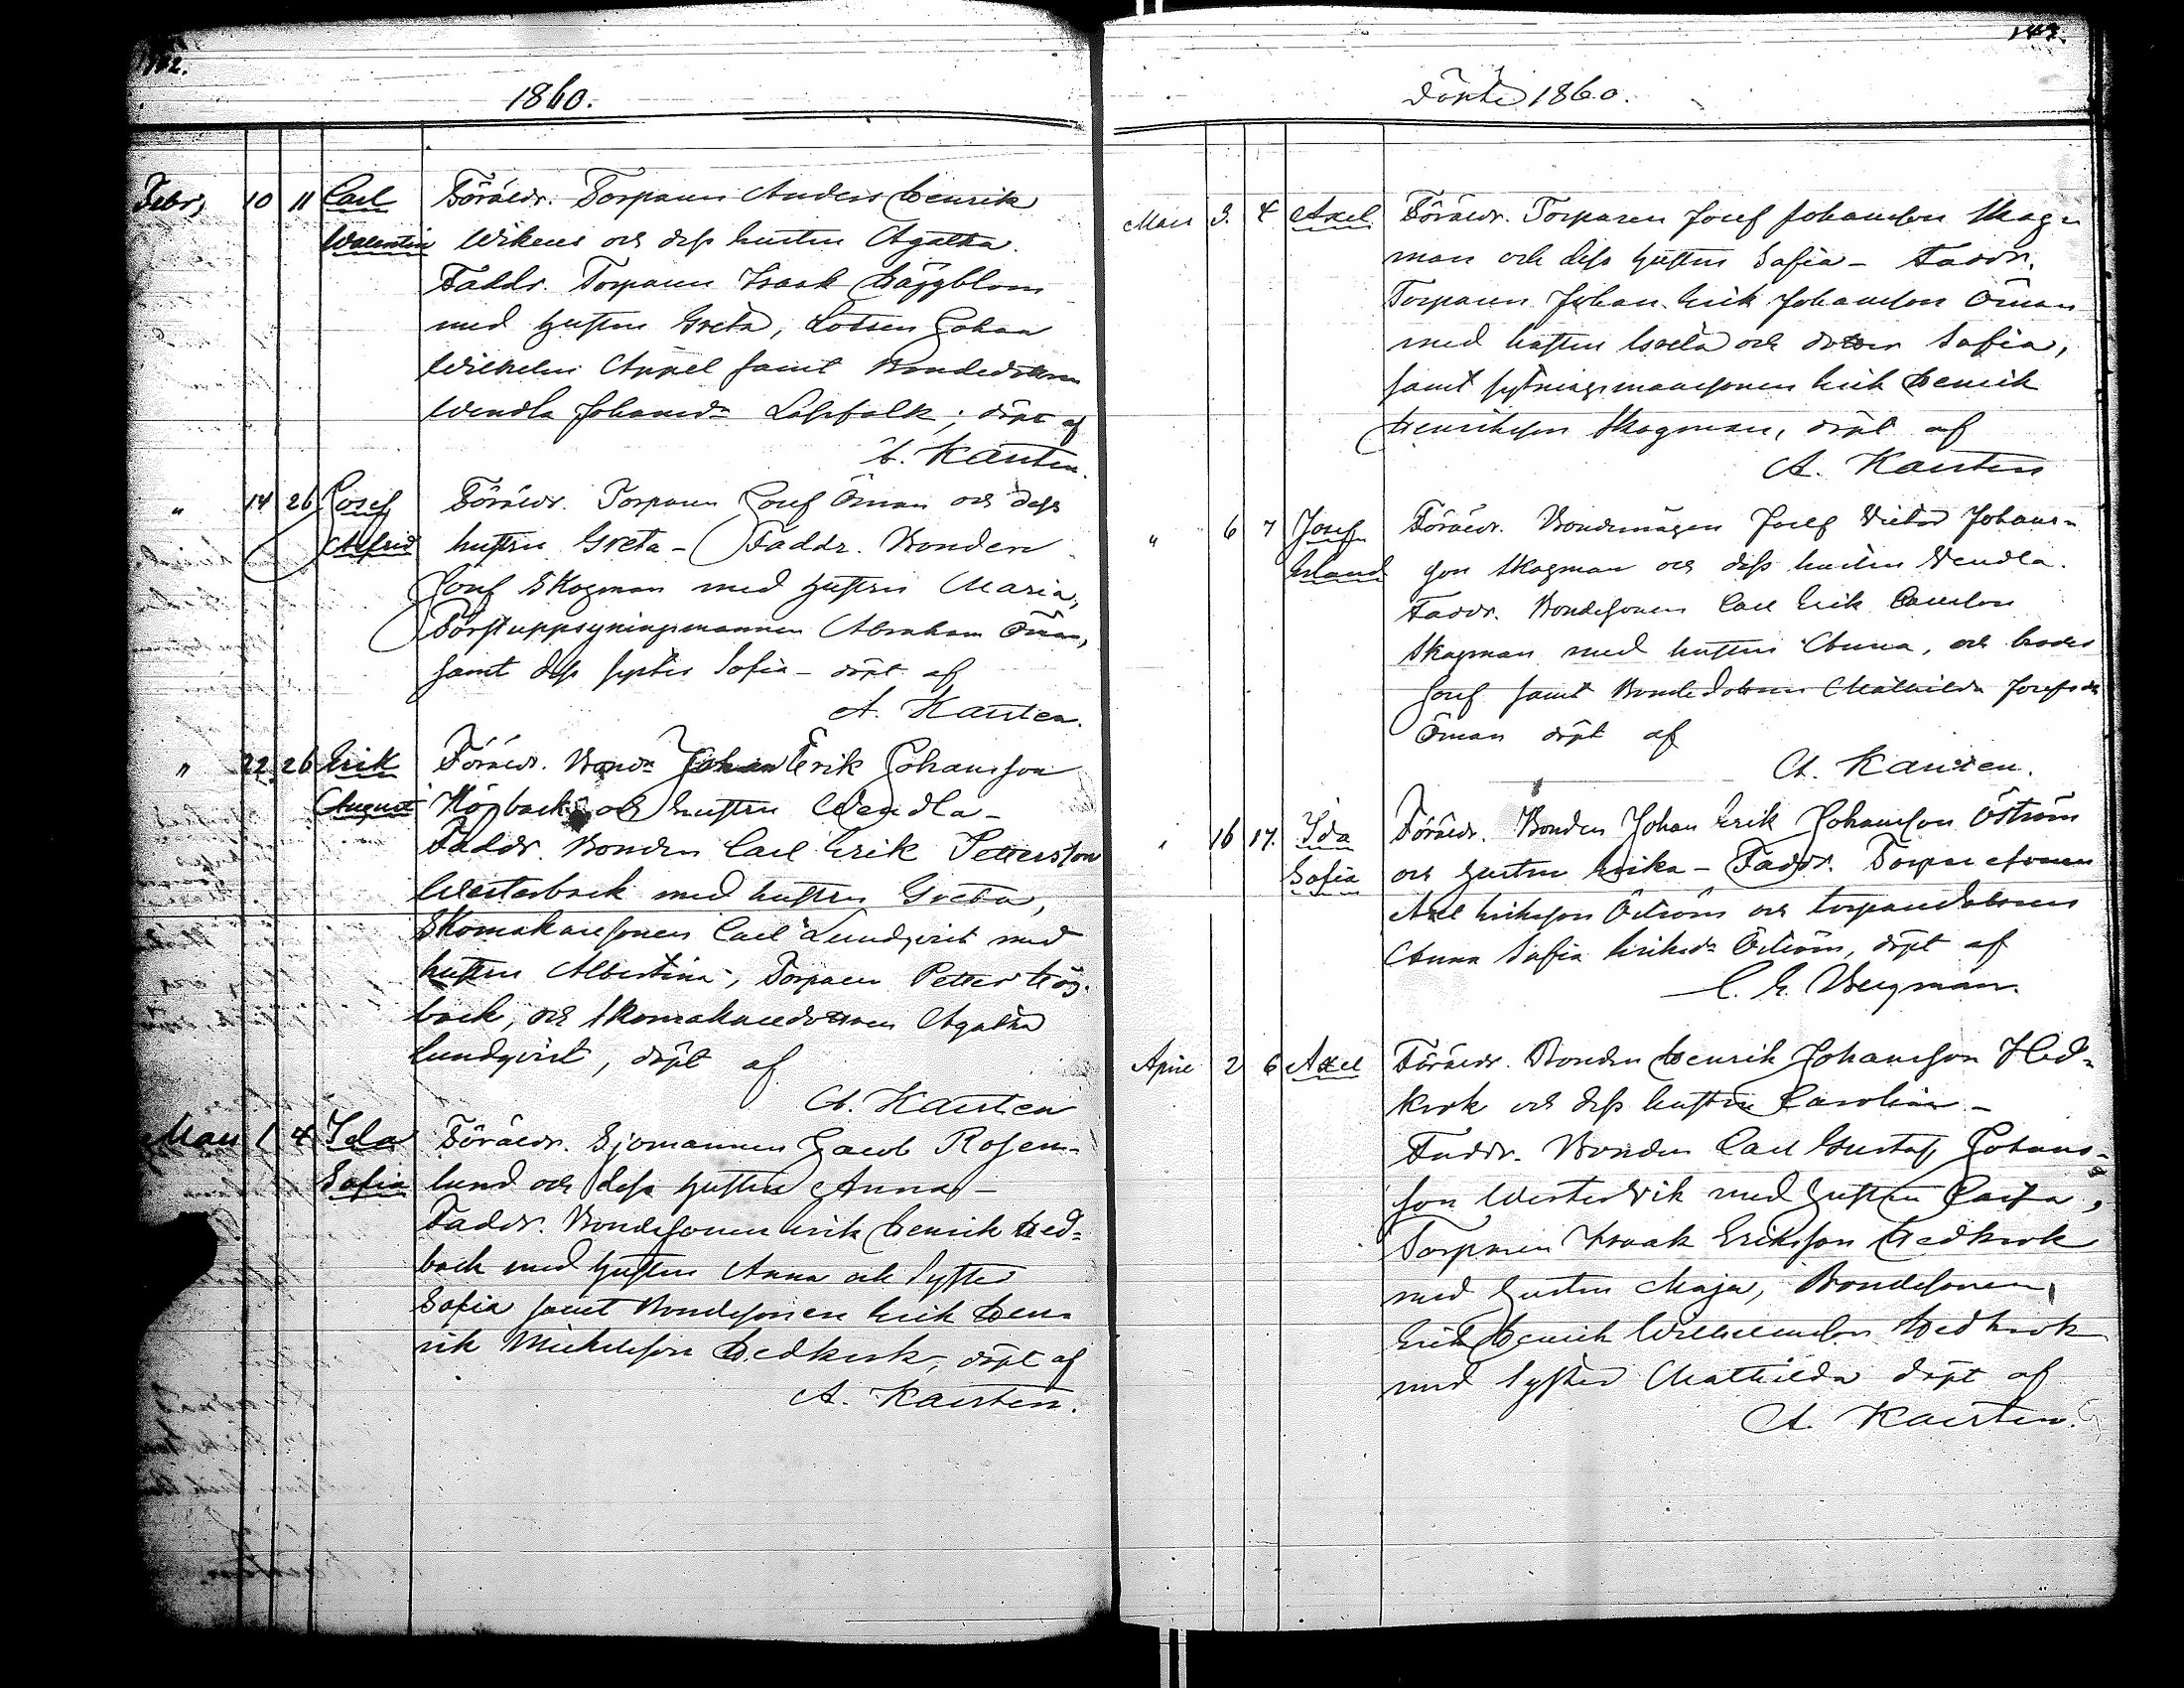 142.
1860.
Febr, 10 11 Carl Föräldr. Torparen Anders Henrik
Walentin Wikens och dess hustru Agatha.
Faddr. Torparen Isaak Häggblom
med hustru Greta, Lotsen Johan
Wilhelm Appel samt Bondedottren
Wendla Johansdr Lassfolk; döpt af
A. Karsten.
" 14 26 Josef Föräldr. Torparen Josef Öman och dess
Alfrid hustru Greta – Faddr. Bonden
Josef Skogman med hustru Maria,
Forstuppsyningsmannen Abraham Öman,
samt dess syster Sofia – döpt af
A. Karsten.
" 22 26 Erik Föräldr. Bond. Johan Erik Johansson
August Högback och hustru Wendla –
Faddr. Bonden Carl Erik Pettersson
Westerback med hustru Greta,
Skomakaresonen Carl Lundqvist med
hustru Albertina, Torparen Petter Hög-
back, och Skomakaredottren Agatha
Lundqvist, döpt af
A. Karsten
Mars 1 4 Ida Föräldr. Sjömannen Jacob Rosen-
Sofia lund och dess hustru Anna –
Faddr. Bondesonen Erik Henrik Hed-
back med hustru Anna och Syster
Sofia samt Bondesonen Erik Hen-
rik Michelsson Hedkrok, döpt af
A. Karsten.
143.
Döpte 1860.
Mars 3. 4 Axel Föräldr. Torparen Josef Johansson Skog-
man och dess hustru Sofia – Faddr.
Torparen Johan Erik Johansson Öman
med hustru Greta och dotter Sofia,
samt sytningsmanssonen Erik Henrik
Henriksson Skogman, döpt af
A. Karsten
" 6 7 Josef Föräldr. Bondemågen Josef Victor Johans-
Erland son Skogman och dess hustru Wendla.
Faddr. Bondesonen Carl Erik Carlsson
Skogman med hustru Anna, och broder
Josef samt Bondedottren Mathilda Josefsdr
Öman döpt af
A. Karsten.
" 16 17. Ida Föräldr. Bonden Johan Erik Johansson Öström
Sofia och hustru Erika – Faddr. Torparesonen
Axel Eriksson Öström och torparedottren
Anna Sofia Eriksdr Öström, döpt af
C. E. Bergman.
April 2 6 Axel Föräldr. Bonden Henrik Johansson Hed-
krok och dess hustru Carolina –
Faddr. Bonden Carl Gustaf Johans-
son Westervik med hustru Caisa,
Torparen Isaak Eriksson Hedkrok
med hustru Maja, Bondesonen
Erik Henrik Willhelmsson Hedkrok
med Syster Mathilda döpt af
A. Karsten.